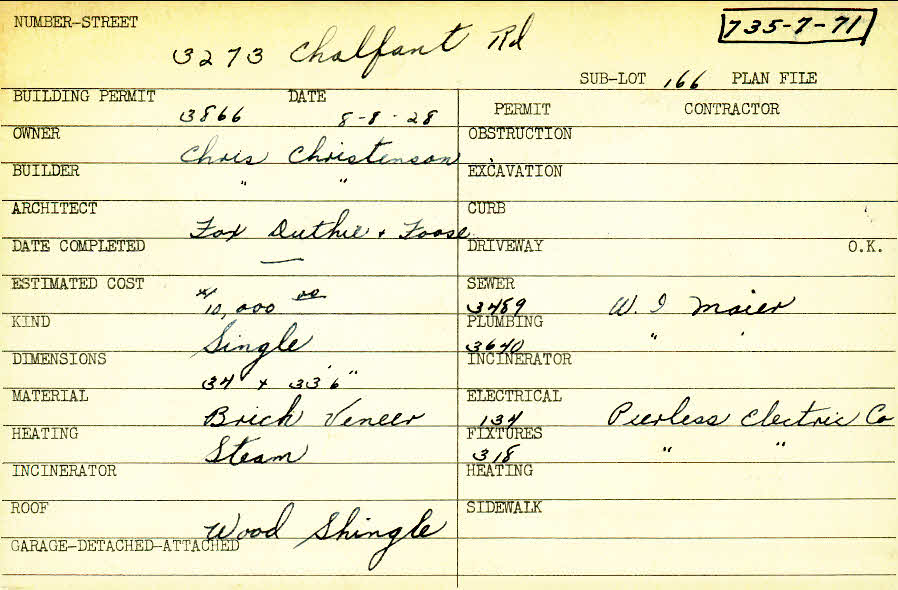 NUMBER-STREET
3273 Chalfant Rd
735-7-71
SUB-LOT 166 PLAN FILE
BUILDING PERMIT DATE
3866 8-8-28
OWNER
Chris Christenson
BUILDER
" "
ARCHITECT
Fox Duthie + Foose
DATE COMPLETED
—
ESTIMATED COST
$10,000 00
KIND
Single
DIMENSIONS
34 x 33'6"
MATERIAL
Brick Veneer
HEATING
Steam
INCINERATOR
ROOF
Wood Shingle
GARAGE-DETACHED-ATTACHED
PERMIT CONTRACTOR
OBSTRUCTION
EXCAVATION
CURB
DRIVEWAY O.K.
SEWER
3489 W. I Maier
PLUMBING
3640 " "
INCINERATOR
ELECTRICAL
134 Peerless Electric Co
FIXTURES
318 " "
HEATING
SIDEWALK